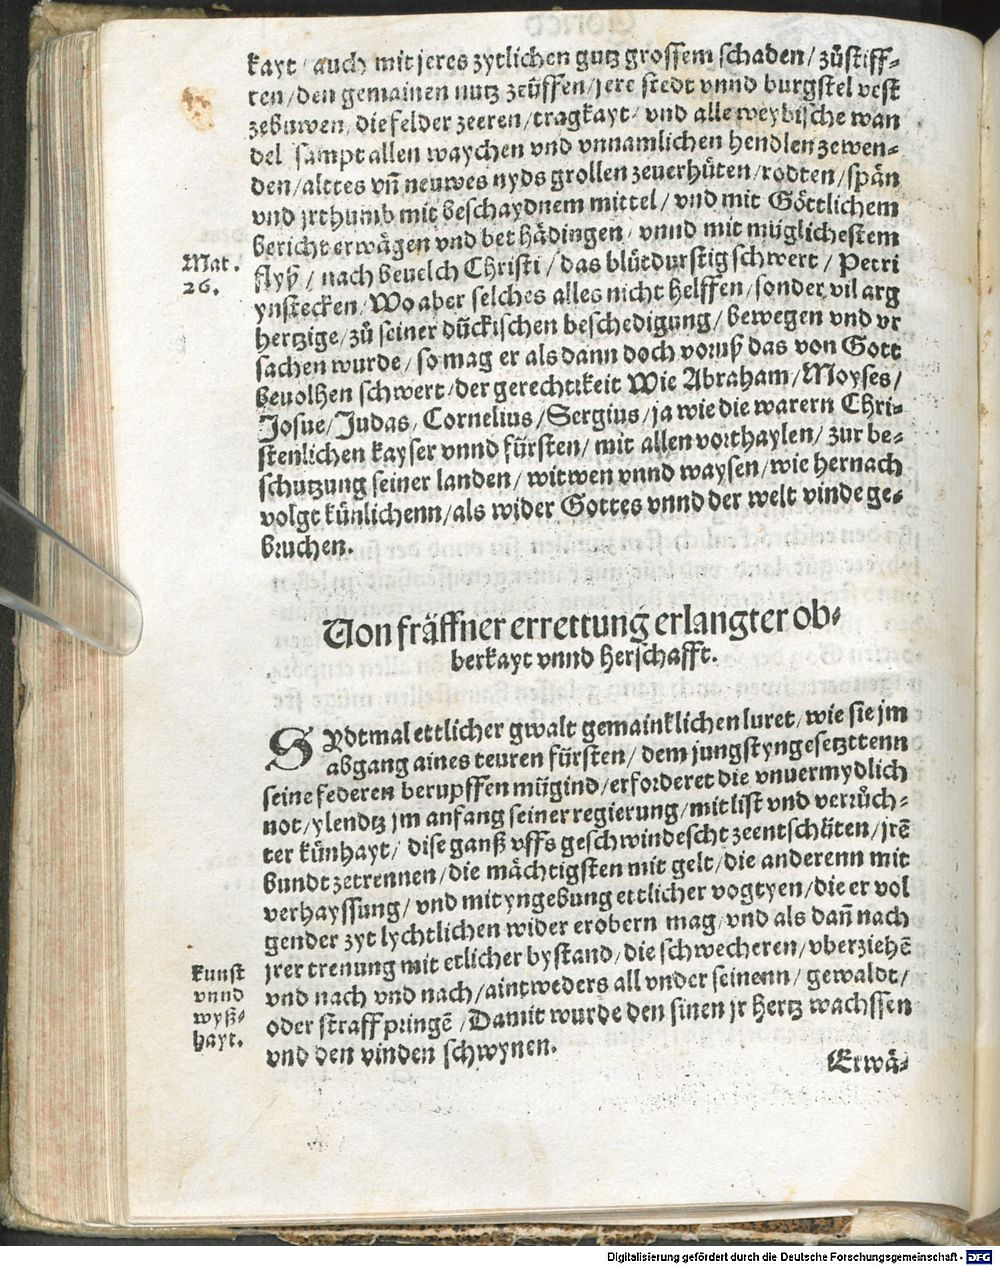 kayt / auch mit jeres zytlichen gutz grossem schaden / zůstiff⸗
ten / den gemainen nutz zeüffen / jere stedt vnnd burgstel vest
zebuwen, die felder zeeren / tragkayt / vnd alle weybische wan
del sampt allen waychen vnd vnnamlichen hendlen zewen⸗
den / alttes vñ neuwes nyds grollen zeuerhüten / rodten / spän
vnd jrthumb mit beschaydnem mittel / vnd mit Göttlichem
bericht erwägen vnd bethädingen / vnnd mit müglichestem
Mat.
26.
flyß / nach beuelch Christi / das blůtdurstig schwert / Petri
ynstecken / Wo aber selches alles nicht helffen / sonder vil arg
hertzige / zů seiner dückischen beschedigung / bewegen vnd vr
sachen wurde / so mag er als dann doch voruß das von Gott
beuolhen schwert / der gerechtikeit Wie Abraham / Moyses /
Josue / Judas, Cornelius / Sergius / ja wie die warern Chri⸗
stenlichen kayser vnnd fürsten / mit allen vorthaylen / zur be⸗
schutzung seiner landen / witwen vnnd waysen / wie hernach
volgt künlichenn / als wider Gottes vnnd der welt vinde ge⸗
bruchen.
Von fräffner errettung erlangter ob⸗
berkayt vnnd herschafft.
SYdtmal ettlicher gwalt gemainklichen luret, wie sie jm
abgang aines teuren fürsten / dem jungst yngesetzttenn
seine federen berupffen mügind / erforderet die vnuermydlich
not / ylendtz jm anfang seiner regierung / mit list vnd verrůch⸗
ter künhayt / dise ganß vffs geschwindescht zeentschüten / jrẽ
bundt zetrennen / die mächtigsten mit gelt / die anderenn mit
verhayssung / vnd mit yngebung ettlicher vogtyen / die er vol
gender zyt lychtlichen wider erobern mag / vnd als dañ nach
kunst
vnnd
wyß⸗
hayt.
jrer trenung mit etlicher bystand / die schwecheren / vberziehẽ
vnd nach vnd nach / aintweders all vnder seinenn / gewaldt /
oder straff pringẽ / Damit wurde den sinen jr hertz wachssen
vnd den vinden schwynen.
Erwä⸗
Digitalisierung gefördert durch die Deutsche Forschungsgemeinschaft - DFG